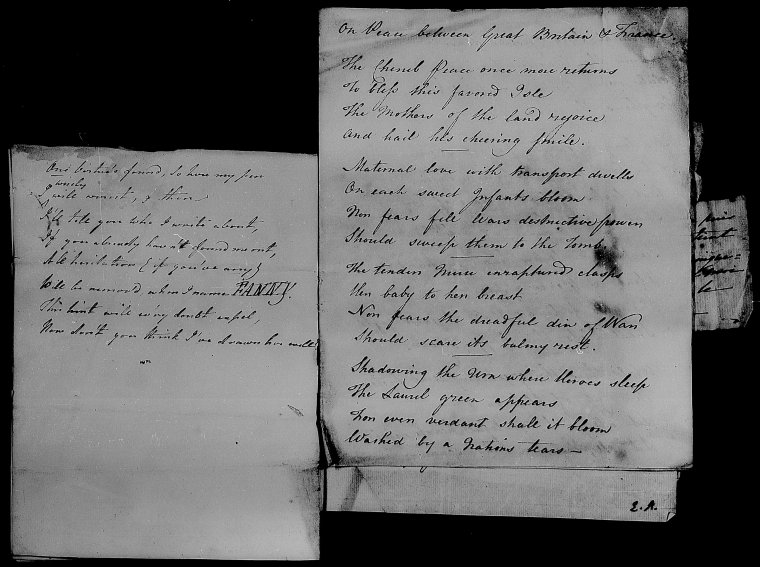 One
so here my pen
I'll tell you who I write about,
If you already hav'n't found me out,
All hesitation (if you've any)
Will be remov'd when I name FANNY.
This hint will ev'ry doubt expel,
Now don't you think I've drawn her well?
On Peace between Great Britain & France.
The Cherub Peace once more returns
To bless this favored Isle
The Mothers of the land rejoice
And hail her cheering smile.
Maternal love with transport dwells
On each sweet Infants bloom
Nor fears fell Wars destructive power
Should sweep them to the Tomb.
The tender Nurse enraptured clasps
Her baby to her breast
Nor fears the dreadful din of War
Should scare its balmy rest.
Shadowing the Urn where Heroes sleep
The Laurel green appears
For ever verdant shall it bloom
Washed by a Nations tears —
E.A.